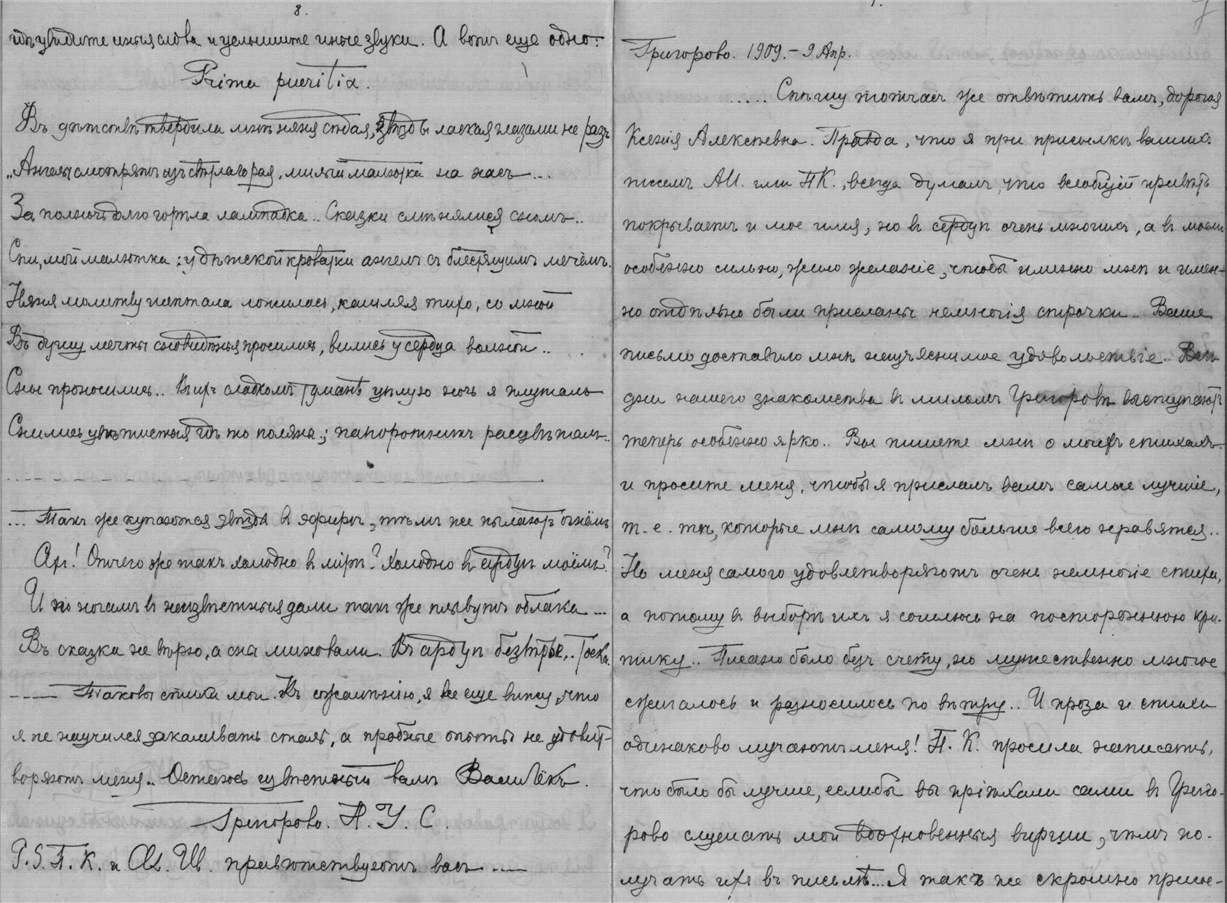 8.
гдѣ увидите иныя слова и услышите иные звуки. А вотъ еще одно:
Prima pueritia.
Въ дѣтствѣ твердила мнѣ няня сѣдая, звѣзды лаская глазами не разъ
„Ангелы смотрятъ изъ свѣтлаго рая, милый малютка на насъ...
За полночь долго горѣла лампадка.. Сказки смѣнялися сномъ..
Спи, мой малютка: у дѣтской кроватки ангелъ съ блестящимъ мечёмъ.
Няня молитву шептала ложилась, кашляя тихо, со мной
Въ душу мечты сновидѣнья просились, вились у сердца волной..
Сны проносились.. Въ ихъ сладкомъ туманѣ цѣлую ночь я плуталъ
Снились цвѣтистыя гдѣ то поляны; папоротникъ расцвѣталъ..
... Такъ же купаются звѣзды въ эѳирѣ, тѣмъ же пылаютъ огнёмъ
Ах! Отчего же такъ холодно въ мірѣ? Холодно въ сердцѣ моёмъ?
И по ночамъ въ неизвѣстныя дали такъ же плывутъ облака...
Въ сказки не вѣрю, а сны миновали. Въ сердцѣ безвѣрье.. Тоска.
Таковы стихи мои. Къ сожалѣнію, я все еще вижу, что
я не научился закаливать сталь, а пробные опыты не удовлет-
воряютъ меня.. Остаюсь извѣстный вамъ Василёкъ.
Григорово. Н. У. С.
P.S. П. К. и Ал. Ив. привѣтствуютъ васъ
Григорово. 1909. – 9 Апр.
..... Спѣшу тотчасъ же отвѣтить вамъ, дорогая
Ксенія Алексѣевна. Правда, что я при присылкѣ вашихъ
писемъ А.И. или П.К., всегда думалъ что всеобщій привѣтъ
покрываетъ и мое имя, но въ сердцѣ очень многихъ, а въ моемъ
особенно сильно, жило желаніе, чтобы именно мнѣ и имен-
но отдѣльно были присланы немногія строчки.. Ваше
письмо доставило мнѣ неизъяснимое удовольствіе. Всѣ
дни нашего знакомства въ миломъ Григоровѣ выступаютъ
теперь особенно ярко.. Вы пишете мнѣ о моихъ стихахъ
и просите меня, чтобы я прислалъ вамъ самые лучшіе,
т.-е. тѣ, которые мнѣ самому больше всего нравятся..
Но меня самого удовлетворяютъ очень немногіе стихи,
а потому въ выборѣ ихъ я сошлюсь на постороннюю кри-
тику.. Писано было безъ счету, но мужественно многое
сжигалось и разносилось по вѣтру.. И проза и стихи
одинаково мучаютъ меня! П. К. просила написать,
что было бы лучше, еслибы вы пріѣхали сами въ Григо-
рово слушать мои вдохновенныя вирши, чѣмъ по-
лучать ихъ въ письмѣ... Я такъ же скромно присое-